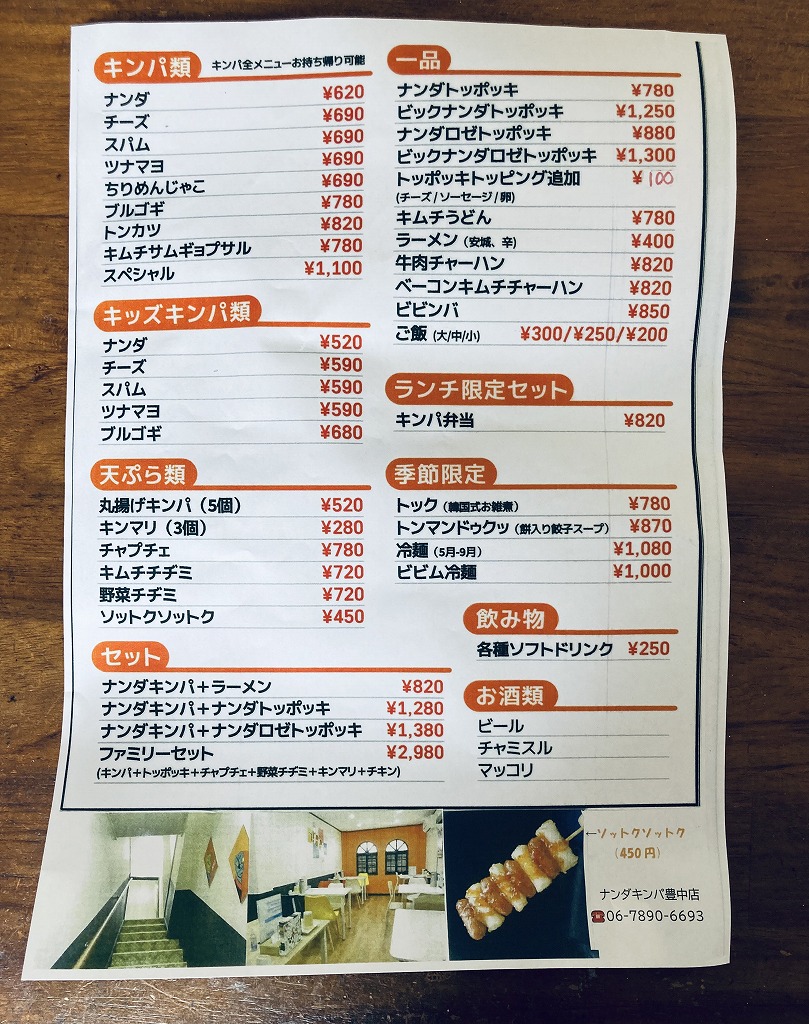 キンパ類 キンパ全メニューお持ち帰り可能
ナンダ ¥620
チーズ ¥690
スパム ¥690
ツナマヨ ¥690
ちりめんじゃこ ¥690
ブルゴギ ¥780
トンカツ ¥820
キムチサムギョプサル ¥780
スペシャル ¥1,100
キッズキンパ類
ナンダ ¥520
チーズ ¥590
スパム ¥590
ツナマヨ ¥590
ブルゴギ ¥680
天ぷら類
丸揚げキンパ（5個） ¥520
キンマリ（3個） ¥280
チャプチェ ¥780
キムチチヂミ ¥720
野菜チヂミ ¥720
ソットクソットク ¥450
セット
ナンダキンパ＋ラーメン ¥820
ナンダキンパ＋ナンダトッポッキ ¥1,280
ナンダキンパ＋ナンダロゼトッポッキ ¥1,380
ファミリーセット ¥2,980
(キンパ＋トッポッキ＋チャプチェ＋野菜チヂミ＋キンマリ＋チキン)
一品
ナンダトッポッキ ¥780
ビックナンダトッポッキ ¥1,250
ナンダロゼトッポッキ ¥880
ビックナンダロゼトッポッキ ¥1,300
トッポッキトッピング追加 ¥100
(チーズ / ソーセージ / 卵)
キムチうどん ¥780
ラーメン（安城、辛) ¥400
牛肉チャーハン ¥820
ベーコンキムチチャーハン ¥820
ビビンバ ¥850
ご飯 (大/中/小) ¥300/¥250/¥200
ランチ限定セット
キンパ弁当 ¥820
季節限定
トック（韓国式お雑煮） ¥780
トンマンドゥクッ（餅入り餃子スープ） ¥870
冷麺（5月-9月） ¥1,080
ビビム冷麺 ¥1,000
飲み物
各種ソフトドリンク ¥250
お酒類
ビール
チャミスル
マッコリ
←ソットクソットク
（450円）
ナンダキンパ豊中店
☎06-7890-6693